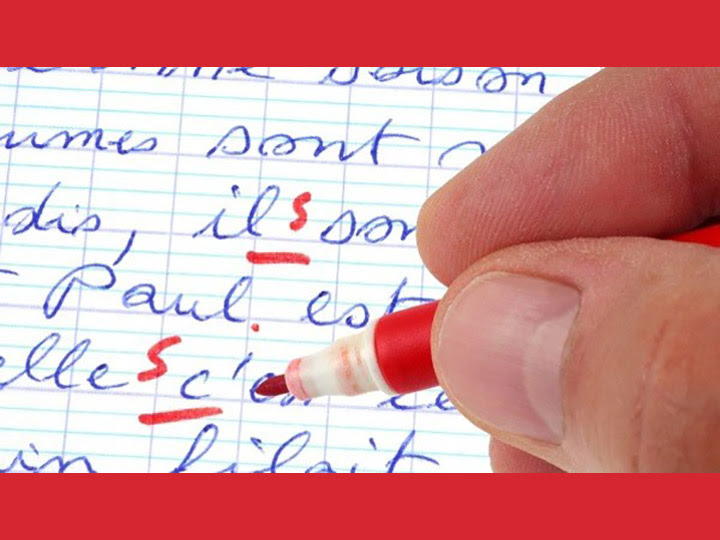 saison
umes sont
dis, ils son
Paul. est
elle s c'en
in filait